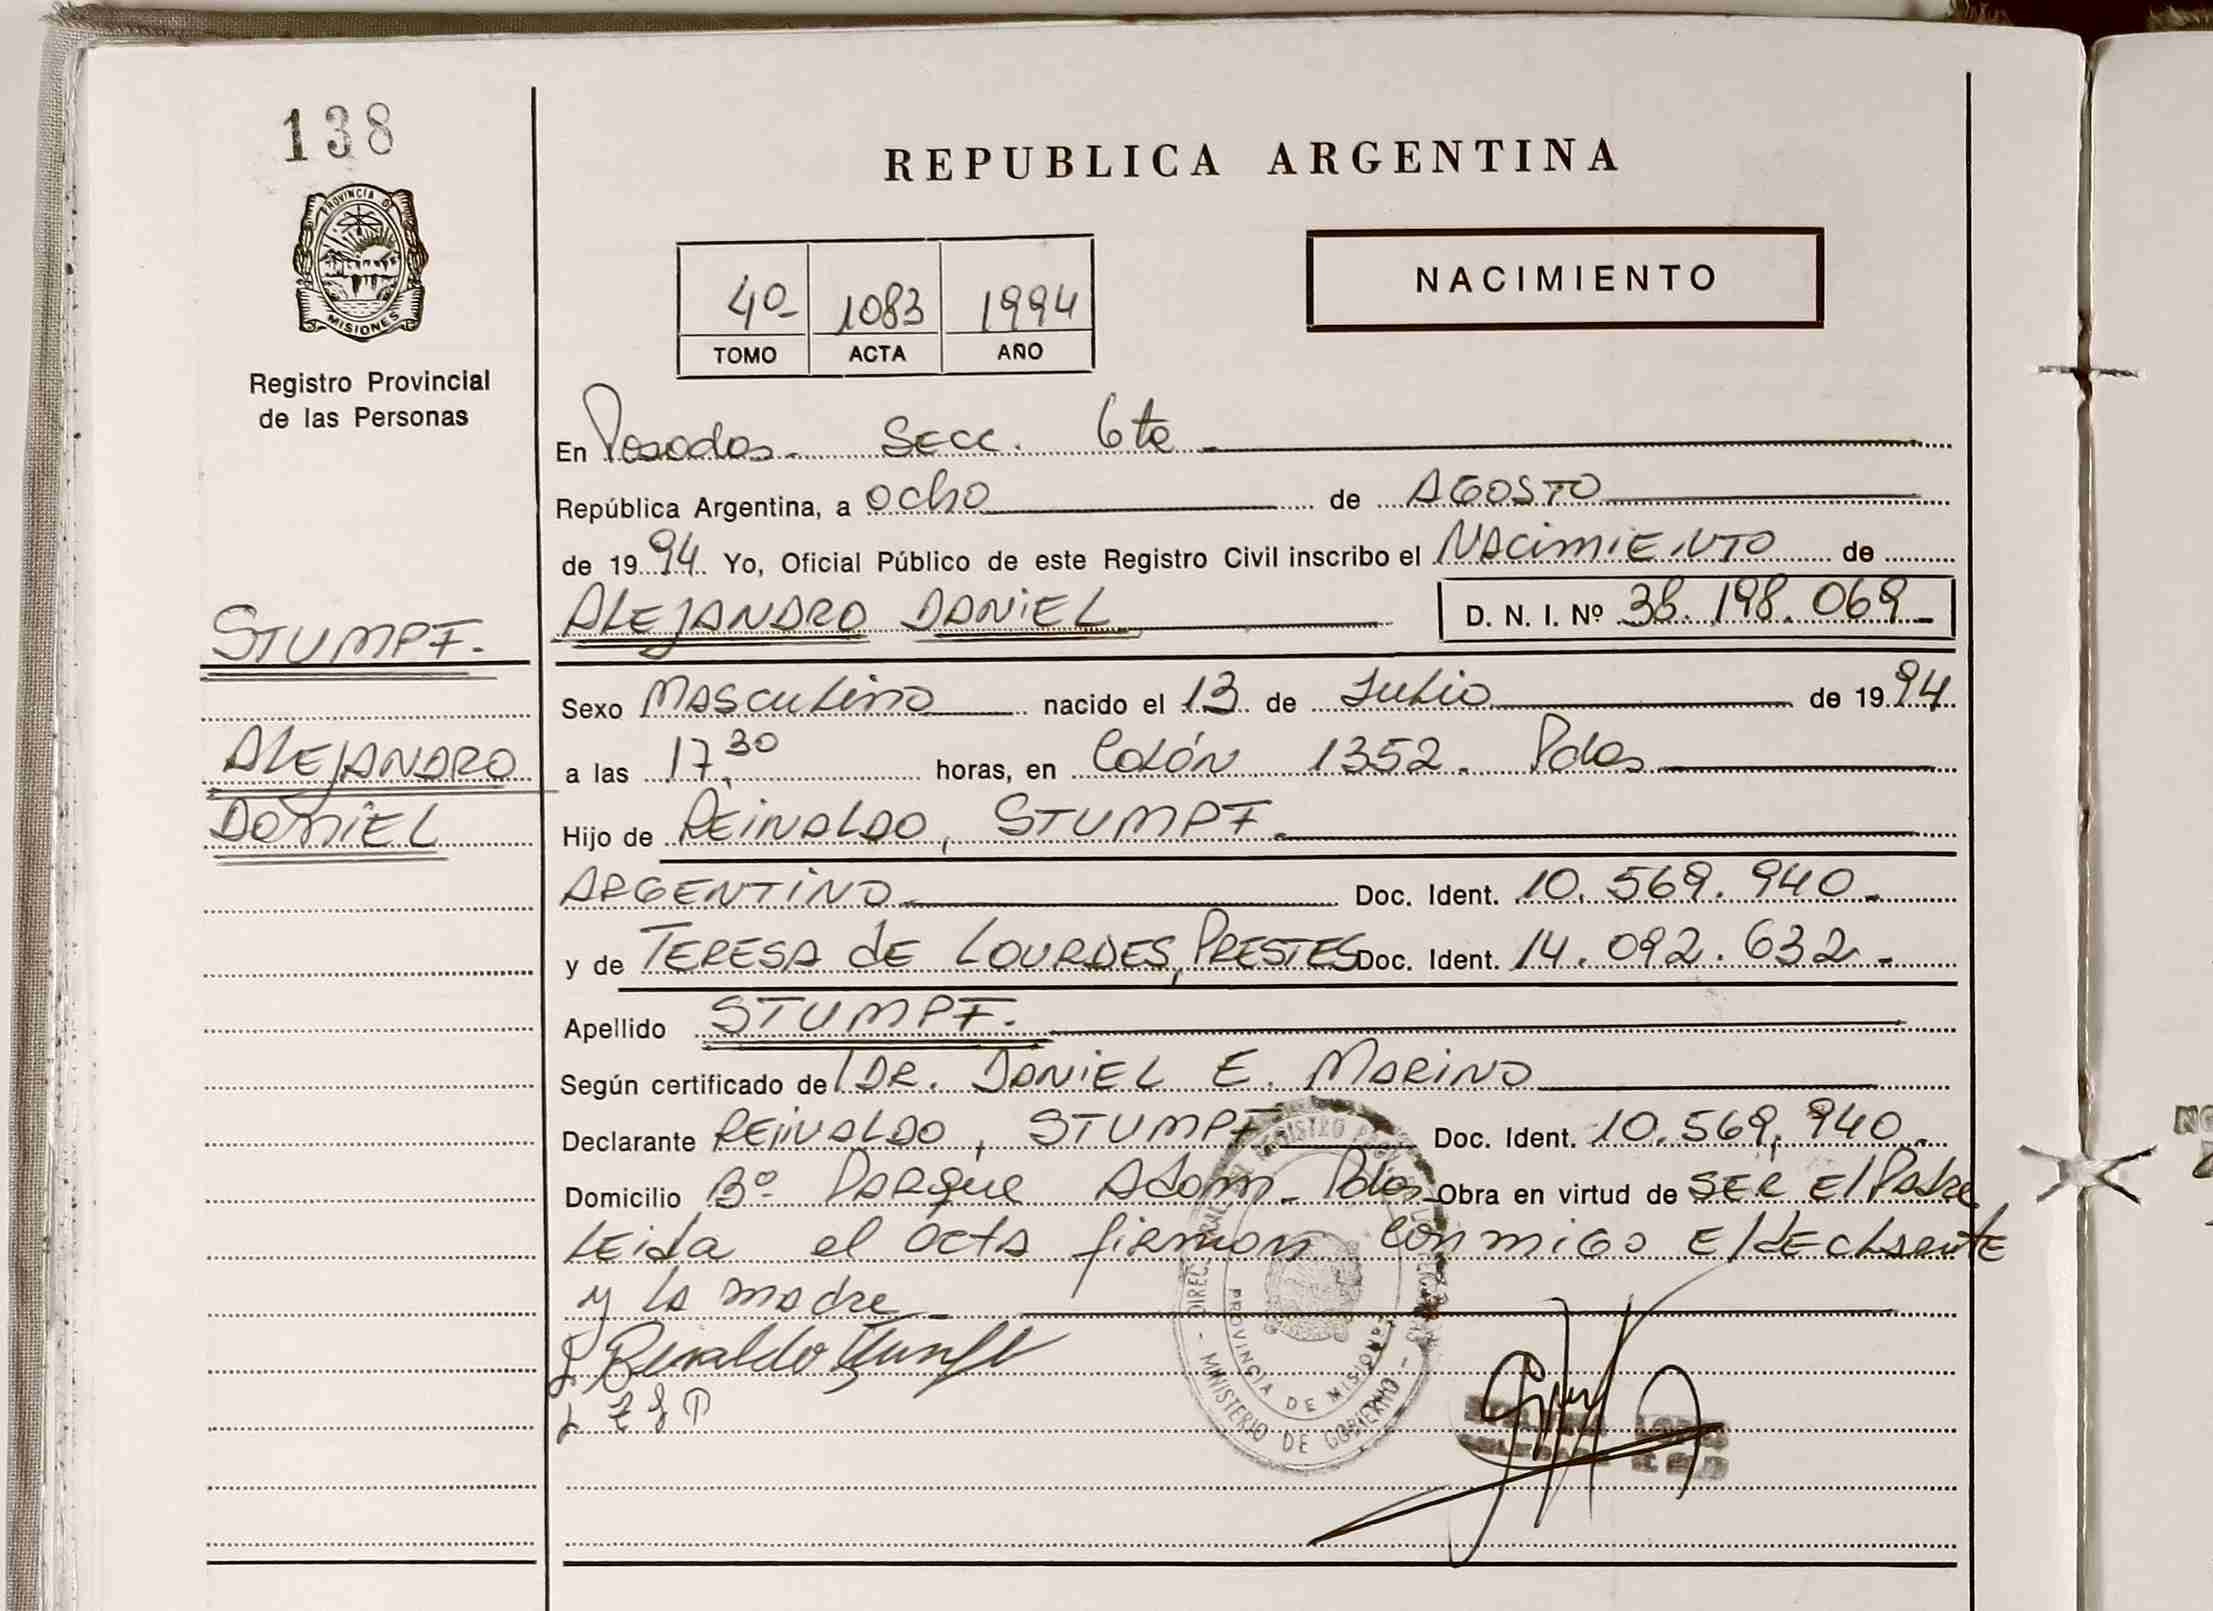 138
PROVINCIA D
MISIONES
Registro Provincial
de las Personas
REPUBLICA ARGENTINA
NACIMIENTO
4º 1083 1994
TOMO ACTA AÑO
En Posadas. Secc. 6ta
República Argentina, a ocho de AGOSTO
de 1994 Yo, Oficial Público de este Registro Civil inscribo el NACIMIENTO de
ALEJANDRO DANIEL D. N. I. Nº 38.198.069
STUMPF.
ALEJANDRO
DANIEL
Sexo MASCULINO nacido el 13 de Julio de 1994
a las 17,30 horas, en Colón 1352. Pdas
Hijo de REINALDO, STUMPF.
ARGENTINO Doc. Ident. 10.569.940.
y de TERESA de LOURDES, PRESTES Doc. Ident. 14.092.632.
Apellido STUMPF.
Según certificado de DR. DANIEL E. MARINO
Declarante REINALDO, STUMPF Doc. Ident. 10.569.940.
Domicilio Bº PARQUE Adam. Pdas Obra en virtud de SER El Padre
LEida el acta firman conmigo El declarante
y la madre
Reinaldo Stumpf
PROVINCIA DE MISIONES
MINISTERIO DE GOBIERNO